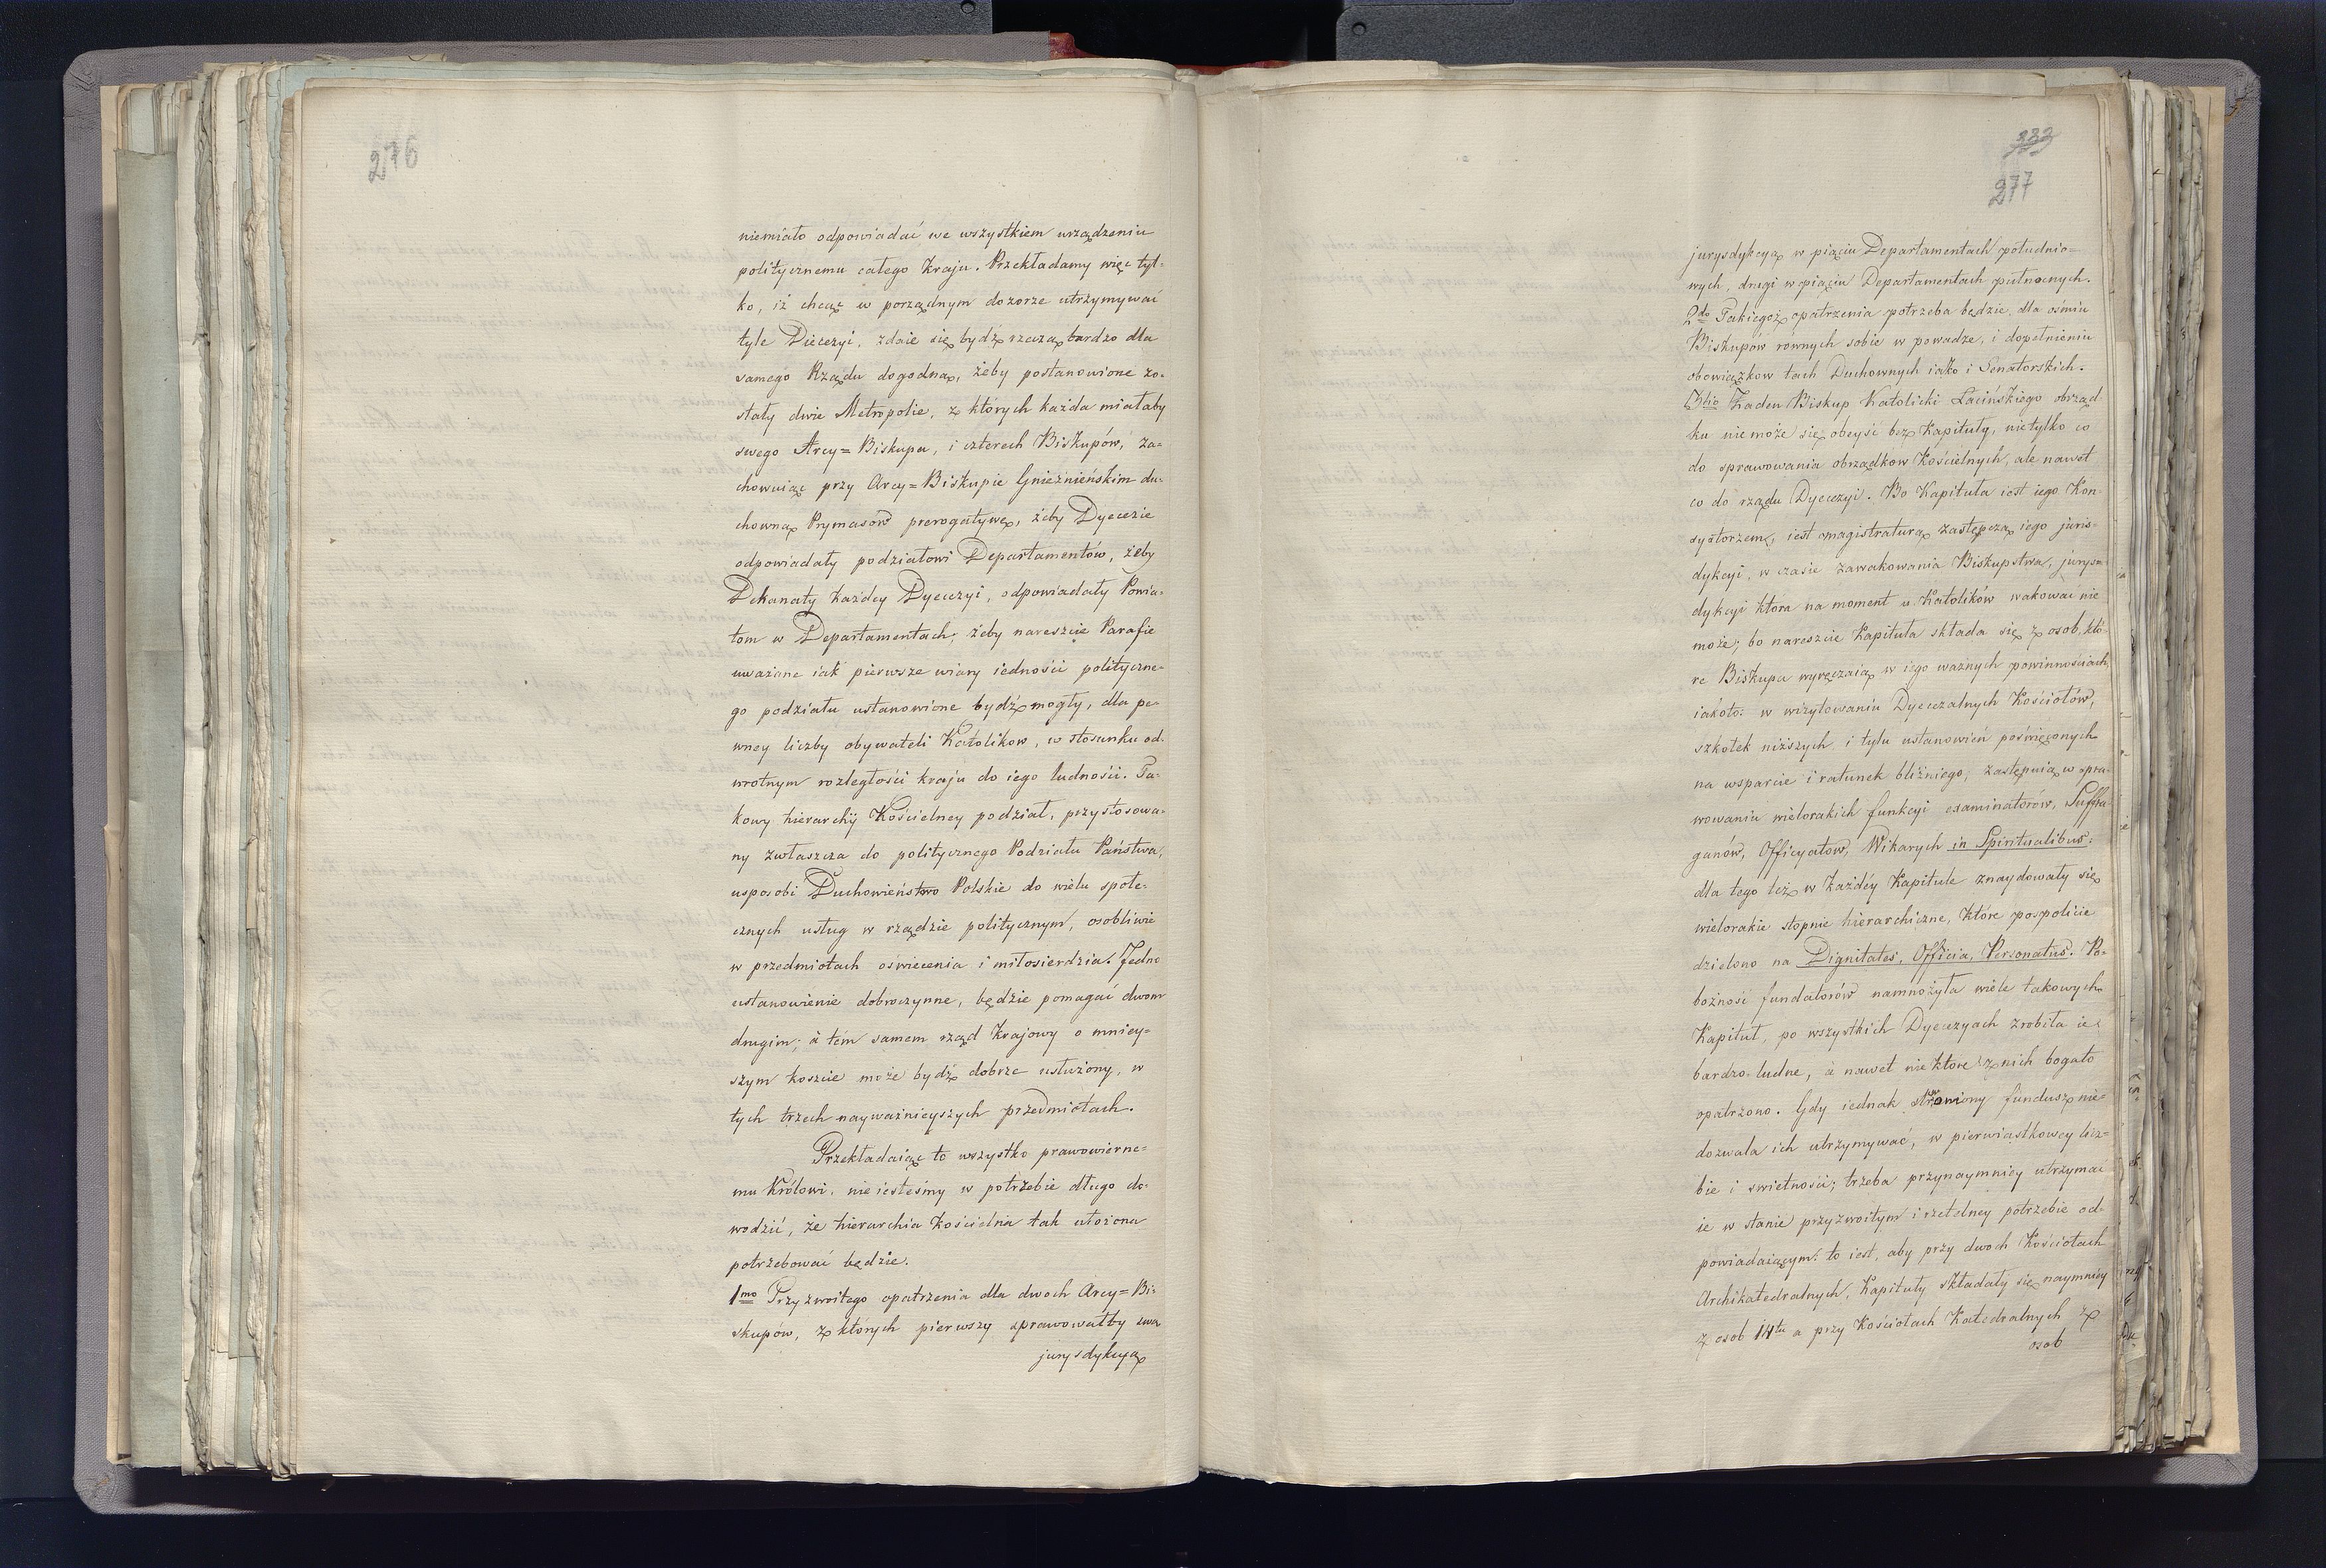 276
niemiało odpowiadać we wszystkiem urządzeniu
politycznemu całego Kraju. Przekładamy więc tyl-
ko, iż chcąc w porządnym dozorze utrzymywać
tyle Diecezyi, zdaie się bydź rzeczą bardzo dla
samego Rządu dogodną, żeby postanowione zo-
stały dwie Metropolie, z których każda miałaby
swego Arcy=Biskupa, i czterech Biskupów, za-
chowuiąc przy Arcy=Biskupie Gnieźnieńskim du-
chowną Prymasów prerogatywę, żeby Dyecezie
odpowiadały podziałowi Departamentów, żeby
Dekanaty każdey Dyecezyi, odpowiadały Powia-
tom w Departamentach; żeby nareszcie Parafie
uważane iak pierwsze wiary iedności polityczne-
go podziału ustanowione bydź mogły, dla pe-
wney liczby obywateli Katolikow, w stosunku od-
wrotnym rozległości kraju do iego ludności. Ta-
kowy hierarchij Kościelney podział, przystosowa-
ny zwłaszcza do politycznego Podziału Państwa,
usposobi Duchowieństwo Polskie do wielu społe-
cznych usług w rządzie politycznym, osobliwie
w przedmiotach oświecenia i miłosierdzia. Jedno
ustanowienie dobroczynne, będzie pomagać dwom
drugim; à tém samem rząd Krajowy o mniey-
szym koszcie może bydź dobrze usłużony, w
tych trzech nayważnieyszych przedmiotach.
Przekładaiąc to wszystko prawowierne-
mu Królowi, nie iesteśmy w potrzebie długo do-
wodzić, że hierarchia Kościelna tak ułożona
potrzebować będzie.
1mo Przyzwoitego opatrzenia dla dwoch Arcy=Bi-
skupów, z których pierwszy sprawowałby swą
jurysdykcyą
333
277
jurysdykcyą w pięciu Departamentach południo=
wych, drugi w pięciu Departamentach pułnocnych.
2do Takiegoż opatrzenia potrzeba będzie dla ośmiu
Biskupów równych sobie w powadze, i dopełnieniu
obowiązkow tach Duchownych iako i Senatorskich.
3tio Żaden Biskup Katolicki Łacińskiego obrząd-
ku nie może się obeyść bez Kapituły, nietylko co
do sprawowania obrządkow Kościelnych, ale nawet
co do rządu Dyecezyi. Bo Kapituła iest iego Kon-
systorzem, iest magistraturą zastępczą iego juris-
dykcyi, w czasie zawakowania Biskupstwa, jurys=
dykcyi ktora na moment u Katolików wakować nie
może; bo nareszcie Kapituła składa się z osob, któ-
re Biskupa wyręczaią w iego ważnych powinnościach,
iakoto: w wizytowaniu Dyecezalnych Kościołów,
szkołek niższych i tylu ustanowień poświęconych
na wsparcie i ratunek bliźniego; zastępuią w spra-
wowaniu wielorakich funkcyi examinatorów, Suffra-
ganów, Officyałow, Wikarych in Spiritualibus:
dla tego też w każdéy Kapitule znaydowały się
wielorakie stopnie hierarchiczne, które pospolicie
dzielono na Dignitates, Officia, Personatus. Po-
bożność fundatorów namnożyła wiele takowych
Kapituł, po wszystkich Dyecezyach zrobiła ie
bardzo ludne, à nawet niektore z nich bogato
opatrzono. Gdy iednak fundusz nie-
dozwala ich utrzymywać, w pierwiastkowey licz-
bie i swietności; trzeba przynaymniey utrzymać
ie w stanie przyzwoitym i rzetelney potrzebie od-
powiadaiącym: to iest, aby przy dwoch Kościołach
Archikatedralnych, Kapituły składały się naymniey
z osob 14tu a przy Kościołach Katedralnych z
osob